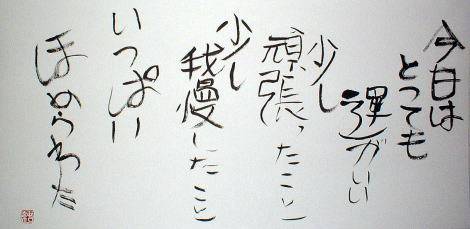 今日は
とっても
運がいい
少し
頑張ったこと
少し
我慢したこと
いっぱい
ほめられた